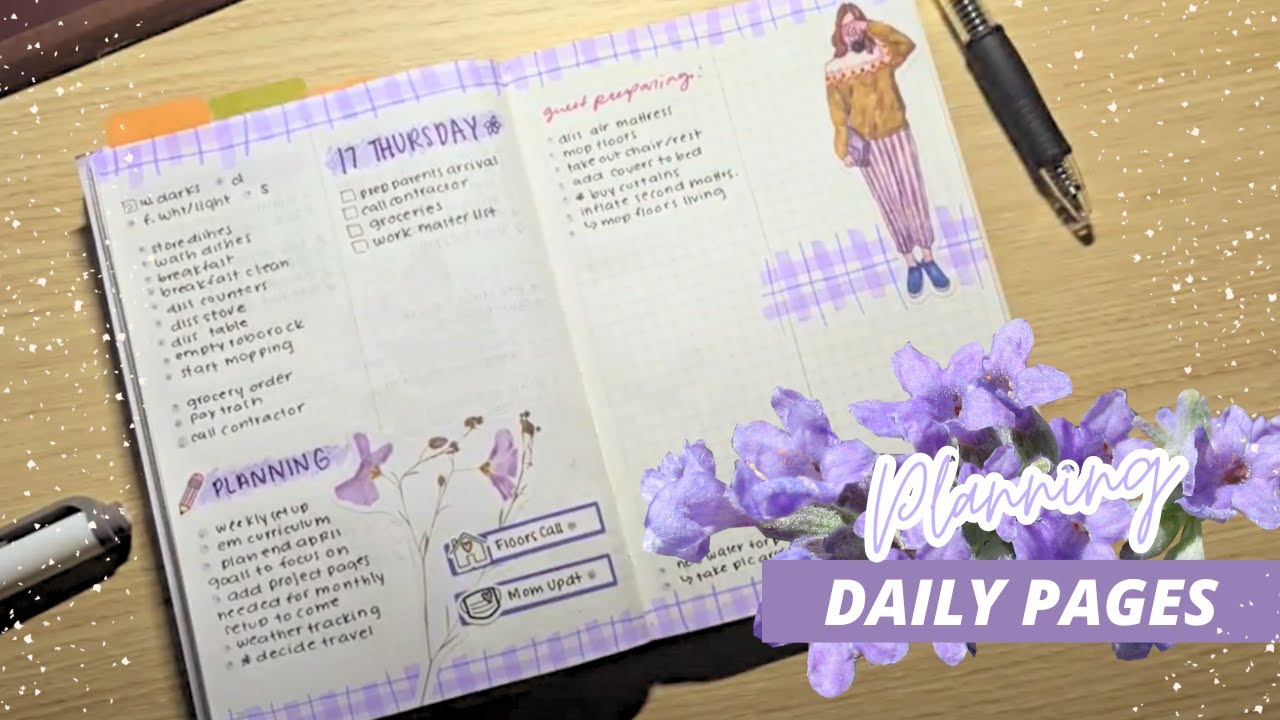 w. darks
d
f. wht/light
s
store dishes
wash dishes
breakfast
breakfast clean
diss counters
diss stove
diss table
empty roborock
start mopping
grocery order
pay trash
call contractor
PLANNING
weekly setup
em curriculum
plan end april
goals to focus on
add project pages
needed for monthly
setup to come
weather tracking
* decide travel
17 THURSDAY
prep parents arrival
call contractor
groceries
work master list
Floors Call
Mom Updt
guest preparing:
diss air mattress
mop floors
take out chair/rest
add covers to bed
* buy curtains
inflate second matrs.
↳ mop floors living
water for
↳ take pic
Planning
DAILY PAGES